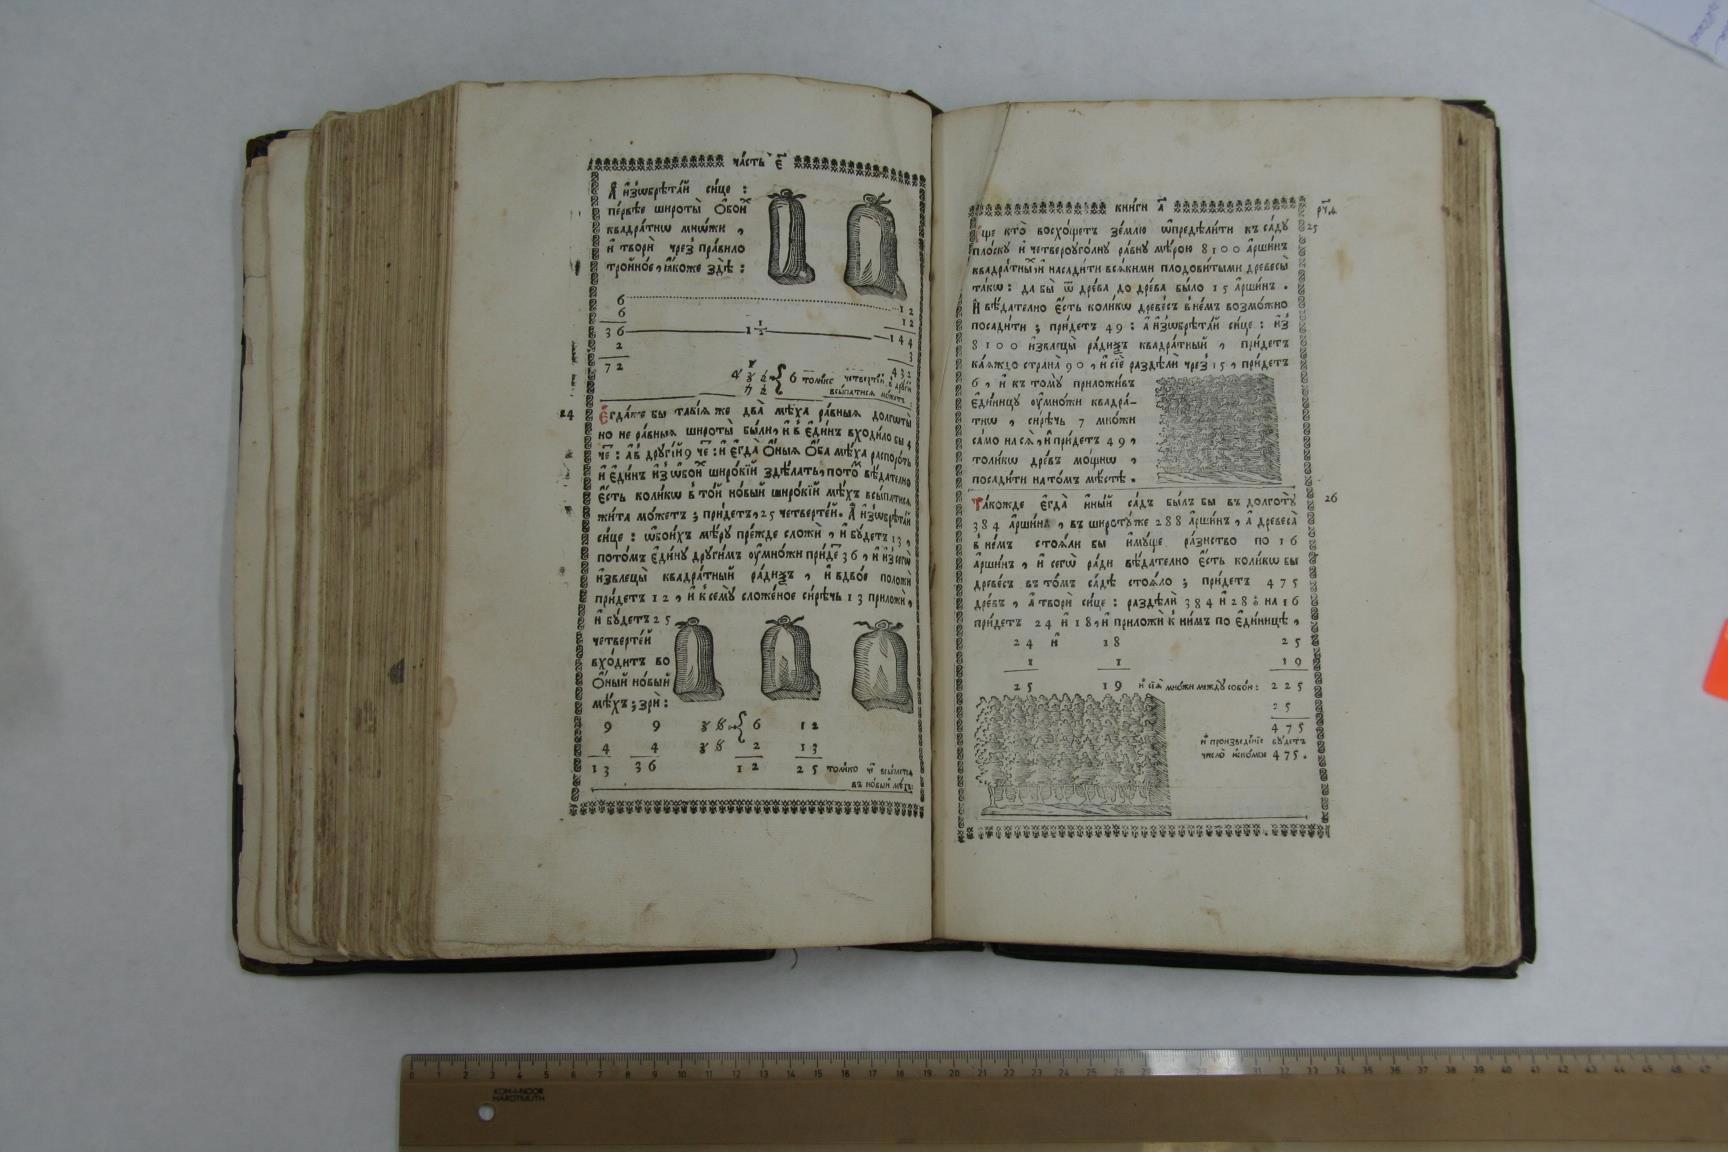 ча́сть є҃
А҆ и҆з̾ѡбрѣта́й си́це :
пе́рвѣе широты̀ ѻ҆бои́х
квадра́тнѡ мно́жи ,
и҆ творѝ чрез̾ пра́вило
тройно́е , ꙗ҆́коже здѣ̀ :
6 12
6 12
36 1 1/2 144
2 3
72 432
6 толи́кѡ четверте́й в̾ дрꙋгі́й
всы́патисѧ мо́жетъ
24 Е҆гда́ же бы такі́ѧ же два̀ мѣ́ха ра́вныѧ долготы̀
но не ра́вныѧ широты̀ бы́ли , и҆ в̾ є҆ди́нъ входи́ло бы 4
че : а҆ в̾ дрꙋгі́й 9 че : и҆ є҆гда̀ ѻ҆́ныѧ ѻ҆́ба мѣ́ха распоро́ть
и҆ є҆ди́нъ и҆з̾ ѻ҆бои́х широ́кїй здѣ́лать , пото́м вѣ́дателно
є҆́сть коли́кѡ в̾ то́й но́вый широ́кїй мѣ́хъ всы́патисѧ
жи́та мо́жетъ ; прі́детъ , 25 четверте́й . А҆ и҆з̾ѡбрѣта́й
си́це : ѻ҆бои́хъ мѣ́рꙋ пре́жде сложѝ , и҆ бꙋ́детъ 13 ,
пото́мъ є҆ди́нꙋ дрꙋги́мъ ᲂу҆мно́жи прі́де 36 , и҆ и҆з̾ сегѡ̀
и҆звлецы̀ квадра́тный ра́диѯъ , и҆ вдво́е положѝ
прі́детъ 12 , и҆ к̾ семꙋ̀ сложе́ное си́рѣчь 13 приложѝ ,
и҆ бꙋ́детъ 25
четверте́й
вхо́дитъ во
ѻ҆́ный но́вый
мѣ́хъ ; зрѝ :
9 9 38 6 12
4 4 38 2 13
13 36 12 25 толи́ко че всы́плетсѧ
въ но́вый мѣ́хъ
кни́ги а҃ рч҃ѧ
А҆́ще кто̀ восхо́щетъ зе́млю ѡ҆предѣли́ти къ са́дꙋ 25
пло́скꙋ и҆ четвероуго́лнꙋ ра́внꙋ мѣ́рою 8100 а҆рши́нъ
квадра́тныхъ и҆ насади́ти всѧ́кими плодови́тыми древесы̀
та́кѡ : да бы̀ ѿ дре́ва до дре́ва бы́ло 15 а҆рши́нъ .
И҆ вѣ́дателно є҆́сть коли́кѡ древе́съ в̾ не́мъ возмо́жно
посади́ти ; прі́детъ 49 : а҆ и҆з̾ѡбрѣта́й си́це : и҆з̾
8100 и҆звлецы̀ ра́диѯъ квадра́тный , прі́детъ
ка́ѧждо страна̀ 90 , и҆ сїѐ раздѣлѝ чрез̾ 15 , прі́детъ
6 , и҆ к̾ томꙋ̀ приложи́въ
є҆дини́цꙋ ᲂу҆мно́жи квадра́-
тнѡ , си́рѣчь 7 мно́жи
само̀ на сѧ̀ , и҆ прі́детъ 49 ,
толи́кѡ дре́въ мо́щнѡ
посади́ти на то́мъ мѣ́стѣ .
Та́кожде є҆гда̀ и҆́ный са́дъ бы́лъ бы въ долготꙋ̀ 26
384 а҆рши́на , въ широтꙋ́ же 288 а҆рши́нъ , а҆ древеса̀
в̾ не́мъ стоѧ́ли бы и҆мꙋ́ще ра́знство по 16
а҆рши́нъ , и҆ сегѡ̀ ра́ди вѣ́дателно є҆́сть коли́кѡ бы
древе́съ въ то́мъ са́дѣ стоѧ́ло ; прі́детъ 475
дре́въ , а҆ творѝ си́це : раздѣлѝ 384 и҆ 288 на 16
прі́детъ 24 и҆ 18 , и҆ приложѝ к̾ ни́мъ по є҆дини́цѣ ,
24 и҆ 18 25
1 1 19
25 19 и҆ сїѧ̀ мно́жи междꙋ̀ собо́й : 225
25
475
и҆ произведе́нїе бꙋ́детъ
число̀ и҆ско́мое 475 .
0 1 2 3 4 5 6 7 8 9 10 11 12 13 14 15 16 17 18 19 20 21 22 23 24 25 26 27 28 29 30 31 32 33 34 35 36 37 38 39 40 41 42 43 44 45 46 47
KOH-I-NOOR
HARDTMUTH